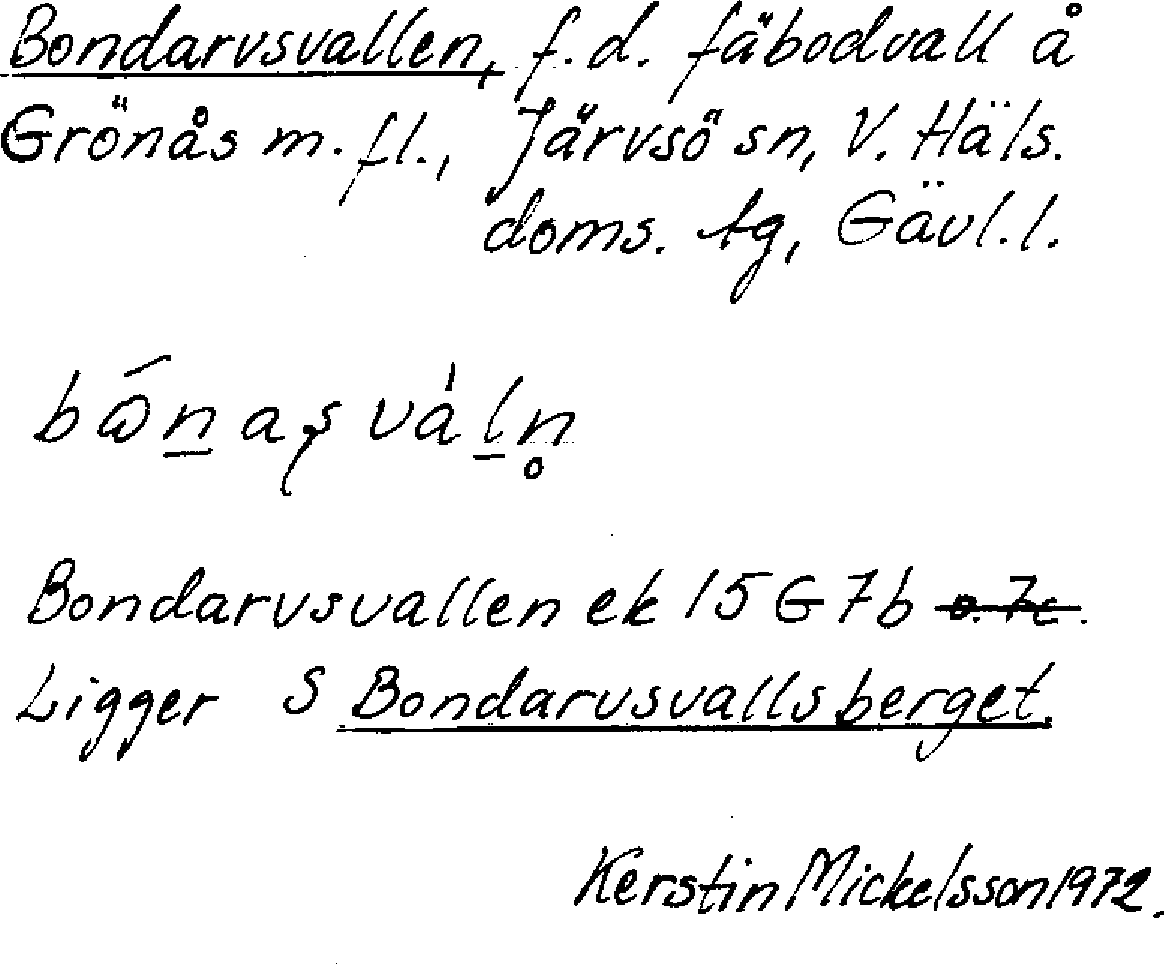 Bondarvsvallen, f.d. fäbodvall å
Grönås m.fl., Järvsö sn, V. Häls.
doms. tg, Gävl.l.
Bondarvsvallen ek 15 G 7b o. 7c.
Ligger S Bondarvsvallsberget.
Kerstin Mickelsson 1972.